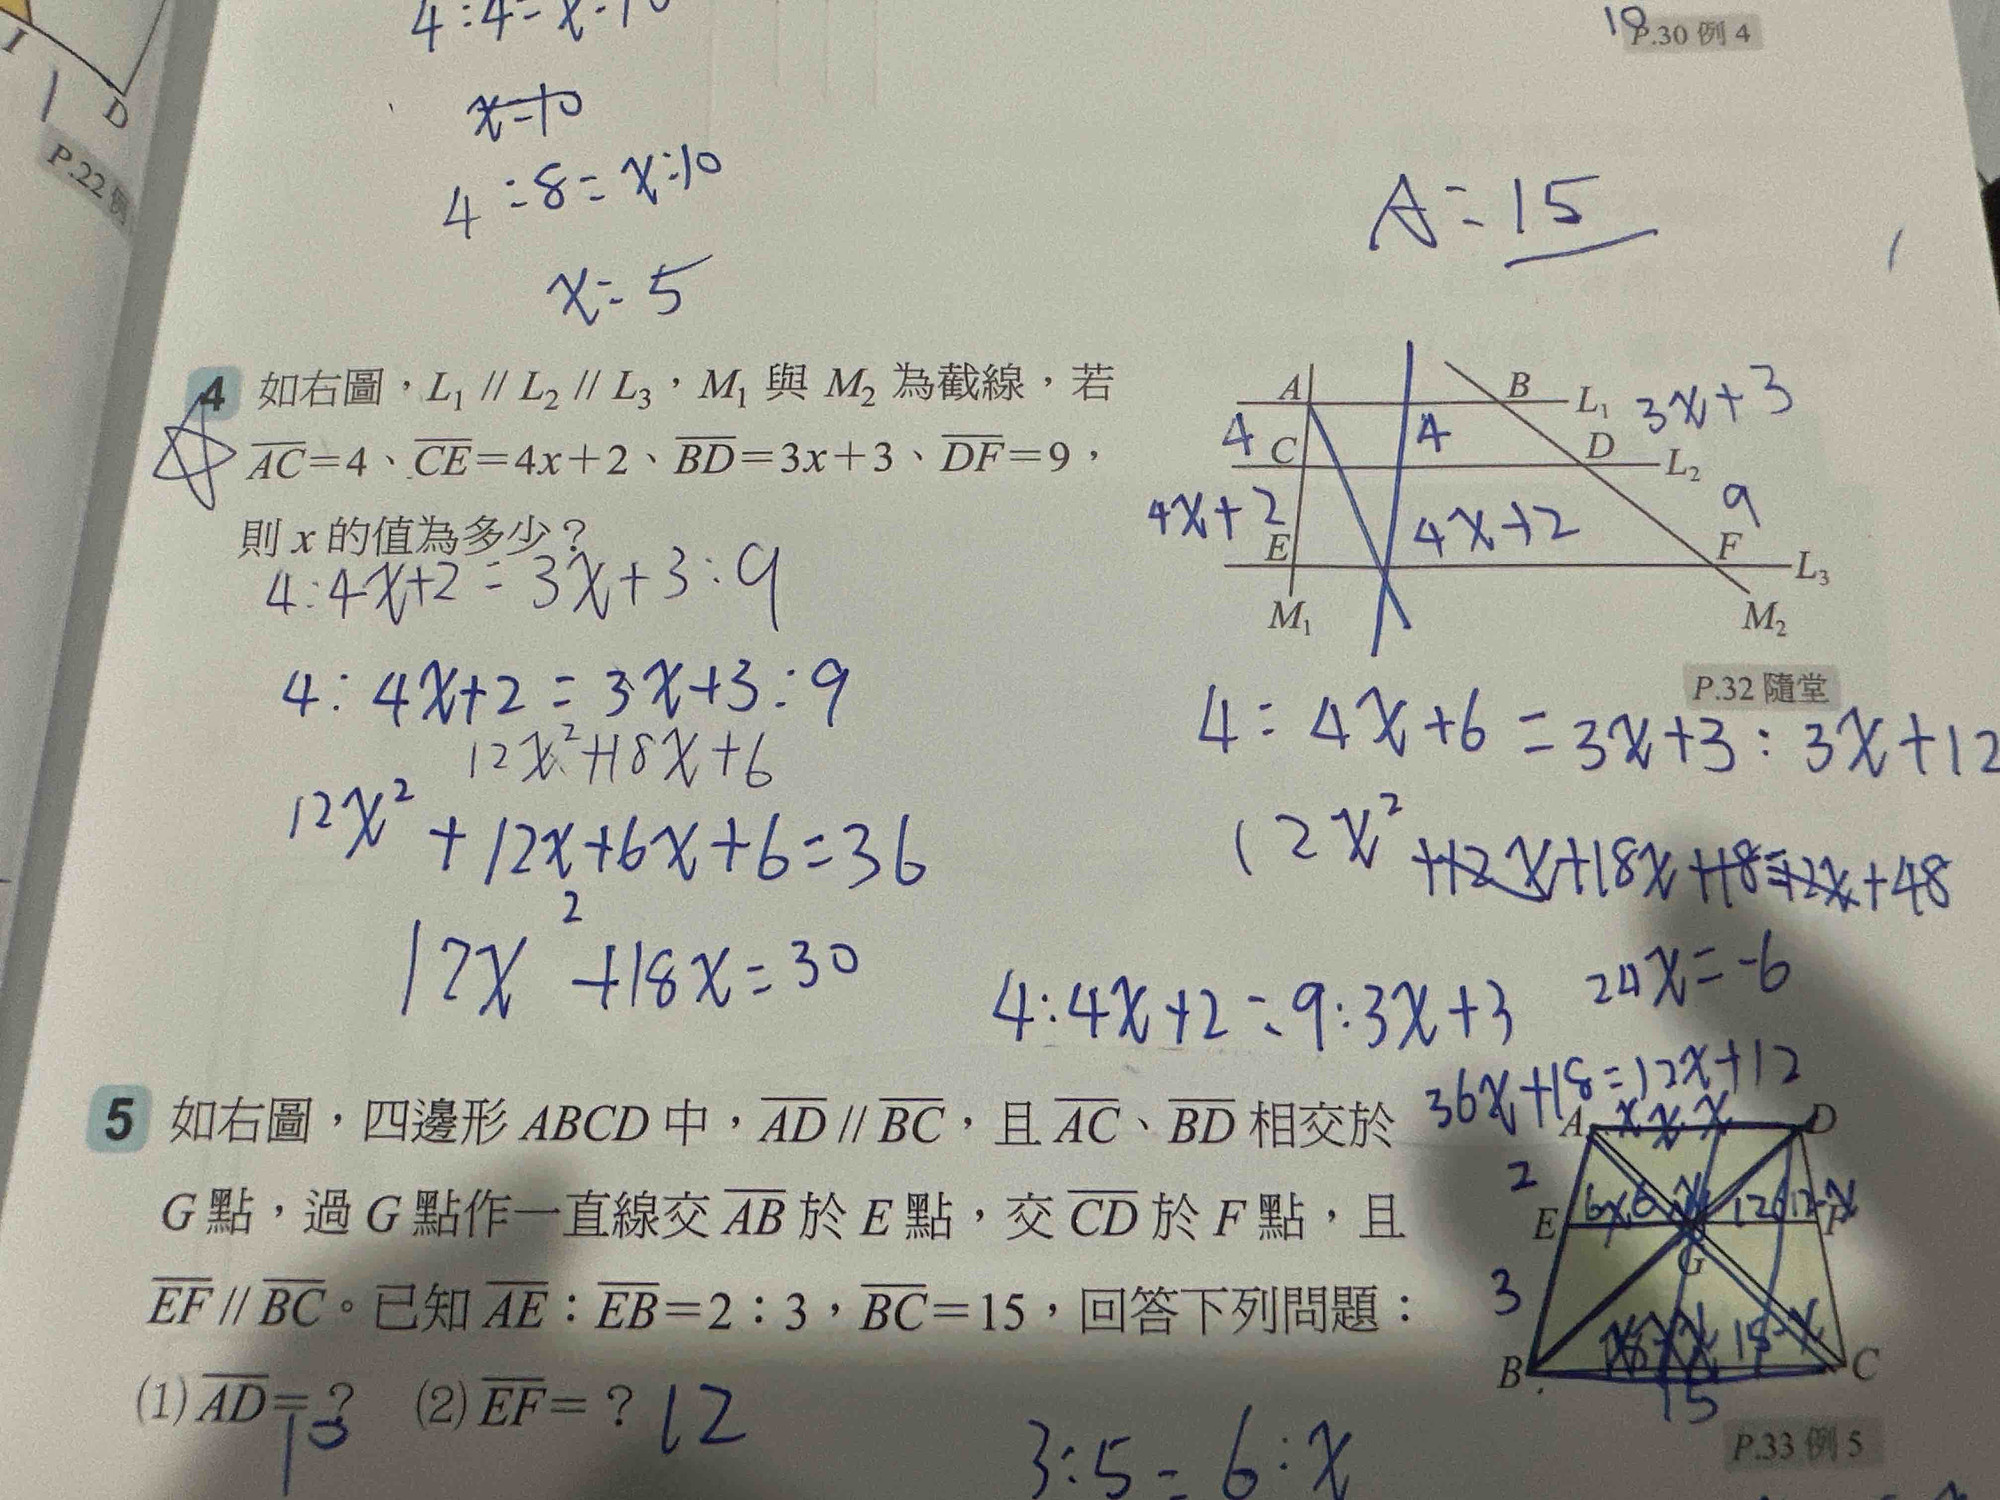 I
D
P.22 例
4:4=x:10
x=10
4:8=x:10
x=5
18
P.30 例 4
A=15
4 如右圖，L₁ // L₂ // L₃，M₁ 與 M₂ 為截線，若
AC=4、CE=4x+2、BD=3x+3、DF=9，
則 x 的值為多少？
A B L₁ 3x+3
4 C 4 D L₂
4x+2 E 4x+2 9 F L₃
M₁ M₂
P.32 隨堂
4:4x+2=3x+3:9
4:4x+2=3x+3:9
12x²+18x+6
12x²+12x+6x+6=36
12x²+18x=30
4:4x+6=3x+3:3x+12
12x²+12x+18x+18=12x+48
24x=-6
4:4x+2=9:3x+3
36x+18=12x+12
5 如右圖，四邊形 ABCD 中，AD // BC，且 AC、BD 相交於
G 點，過 G 點作一直線交 AB 於 E 點，交 CD 於 F 點，且
EF // BC。已知 AE：EB=2：3，BC=15，回答下列問題：
(1) AD=？ (2) EF=？ 12
A x x x D
2
E F
G
3
B C
15
P.33 例 5
3:5=6:x